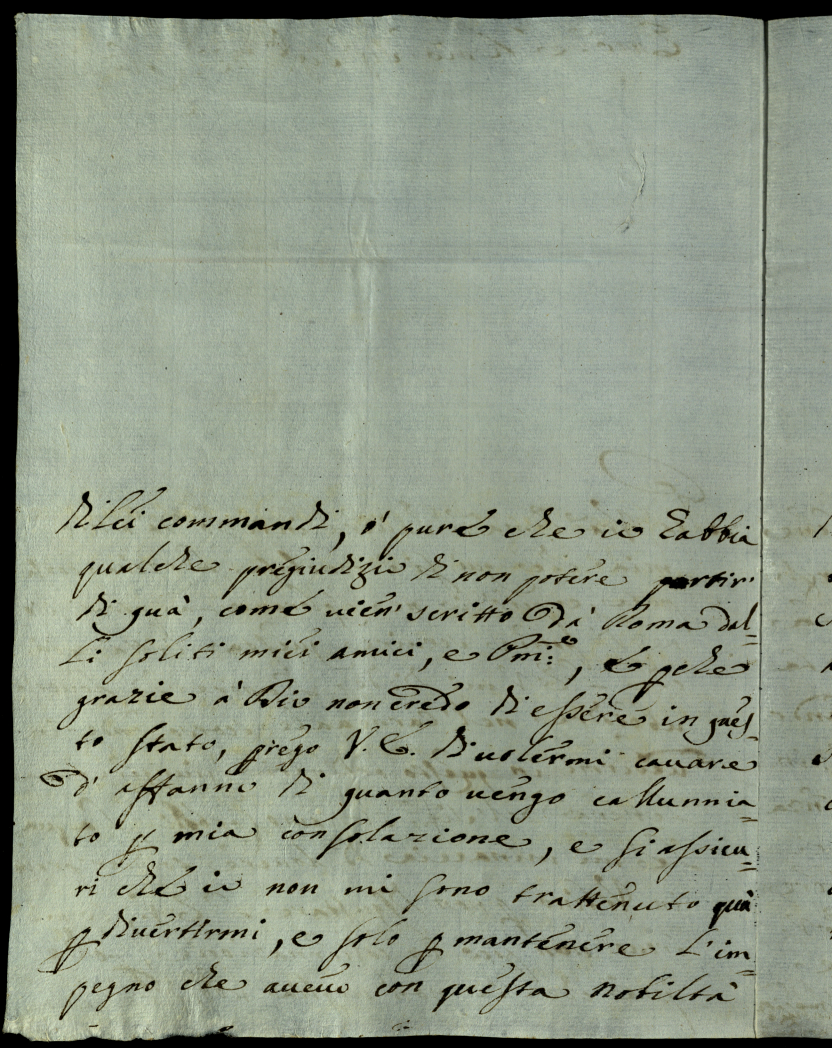 di lei commandi, ò pure che io habbia
qualche pregiudizio di non potere partir'
di quà, come vien' scritto dà Roma dal=
li soliti miei amici, e Pni:, e p che
grazie à Dio non credo di essere in ques=
to stato, prego V. E. di volermi cavare
d' affanno di quanto vengo callunnia=
to p mia consolazione, e si assicu=
ri che io non mi sono trattenuto quà
p divertirmi, e solo p mantenere l'im=
pegno che avevo con questa nobiltà